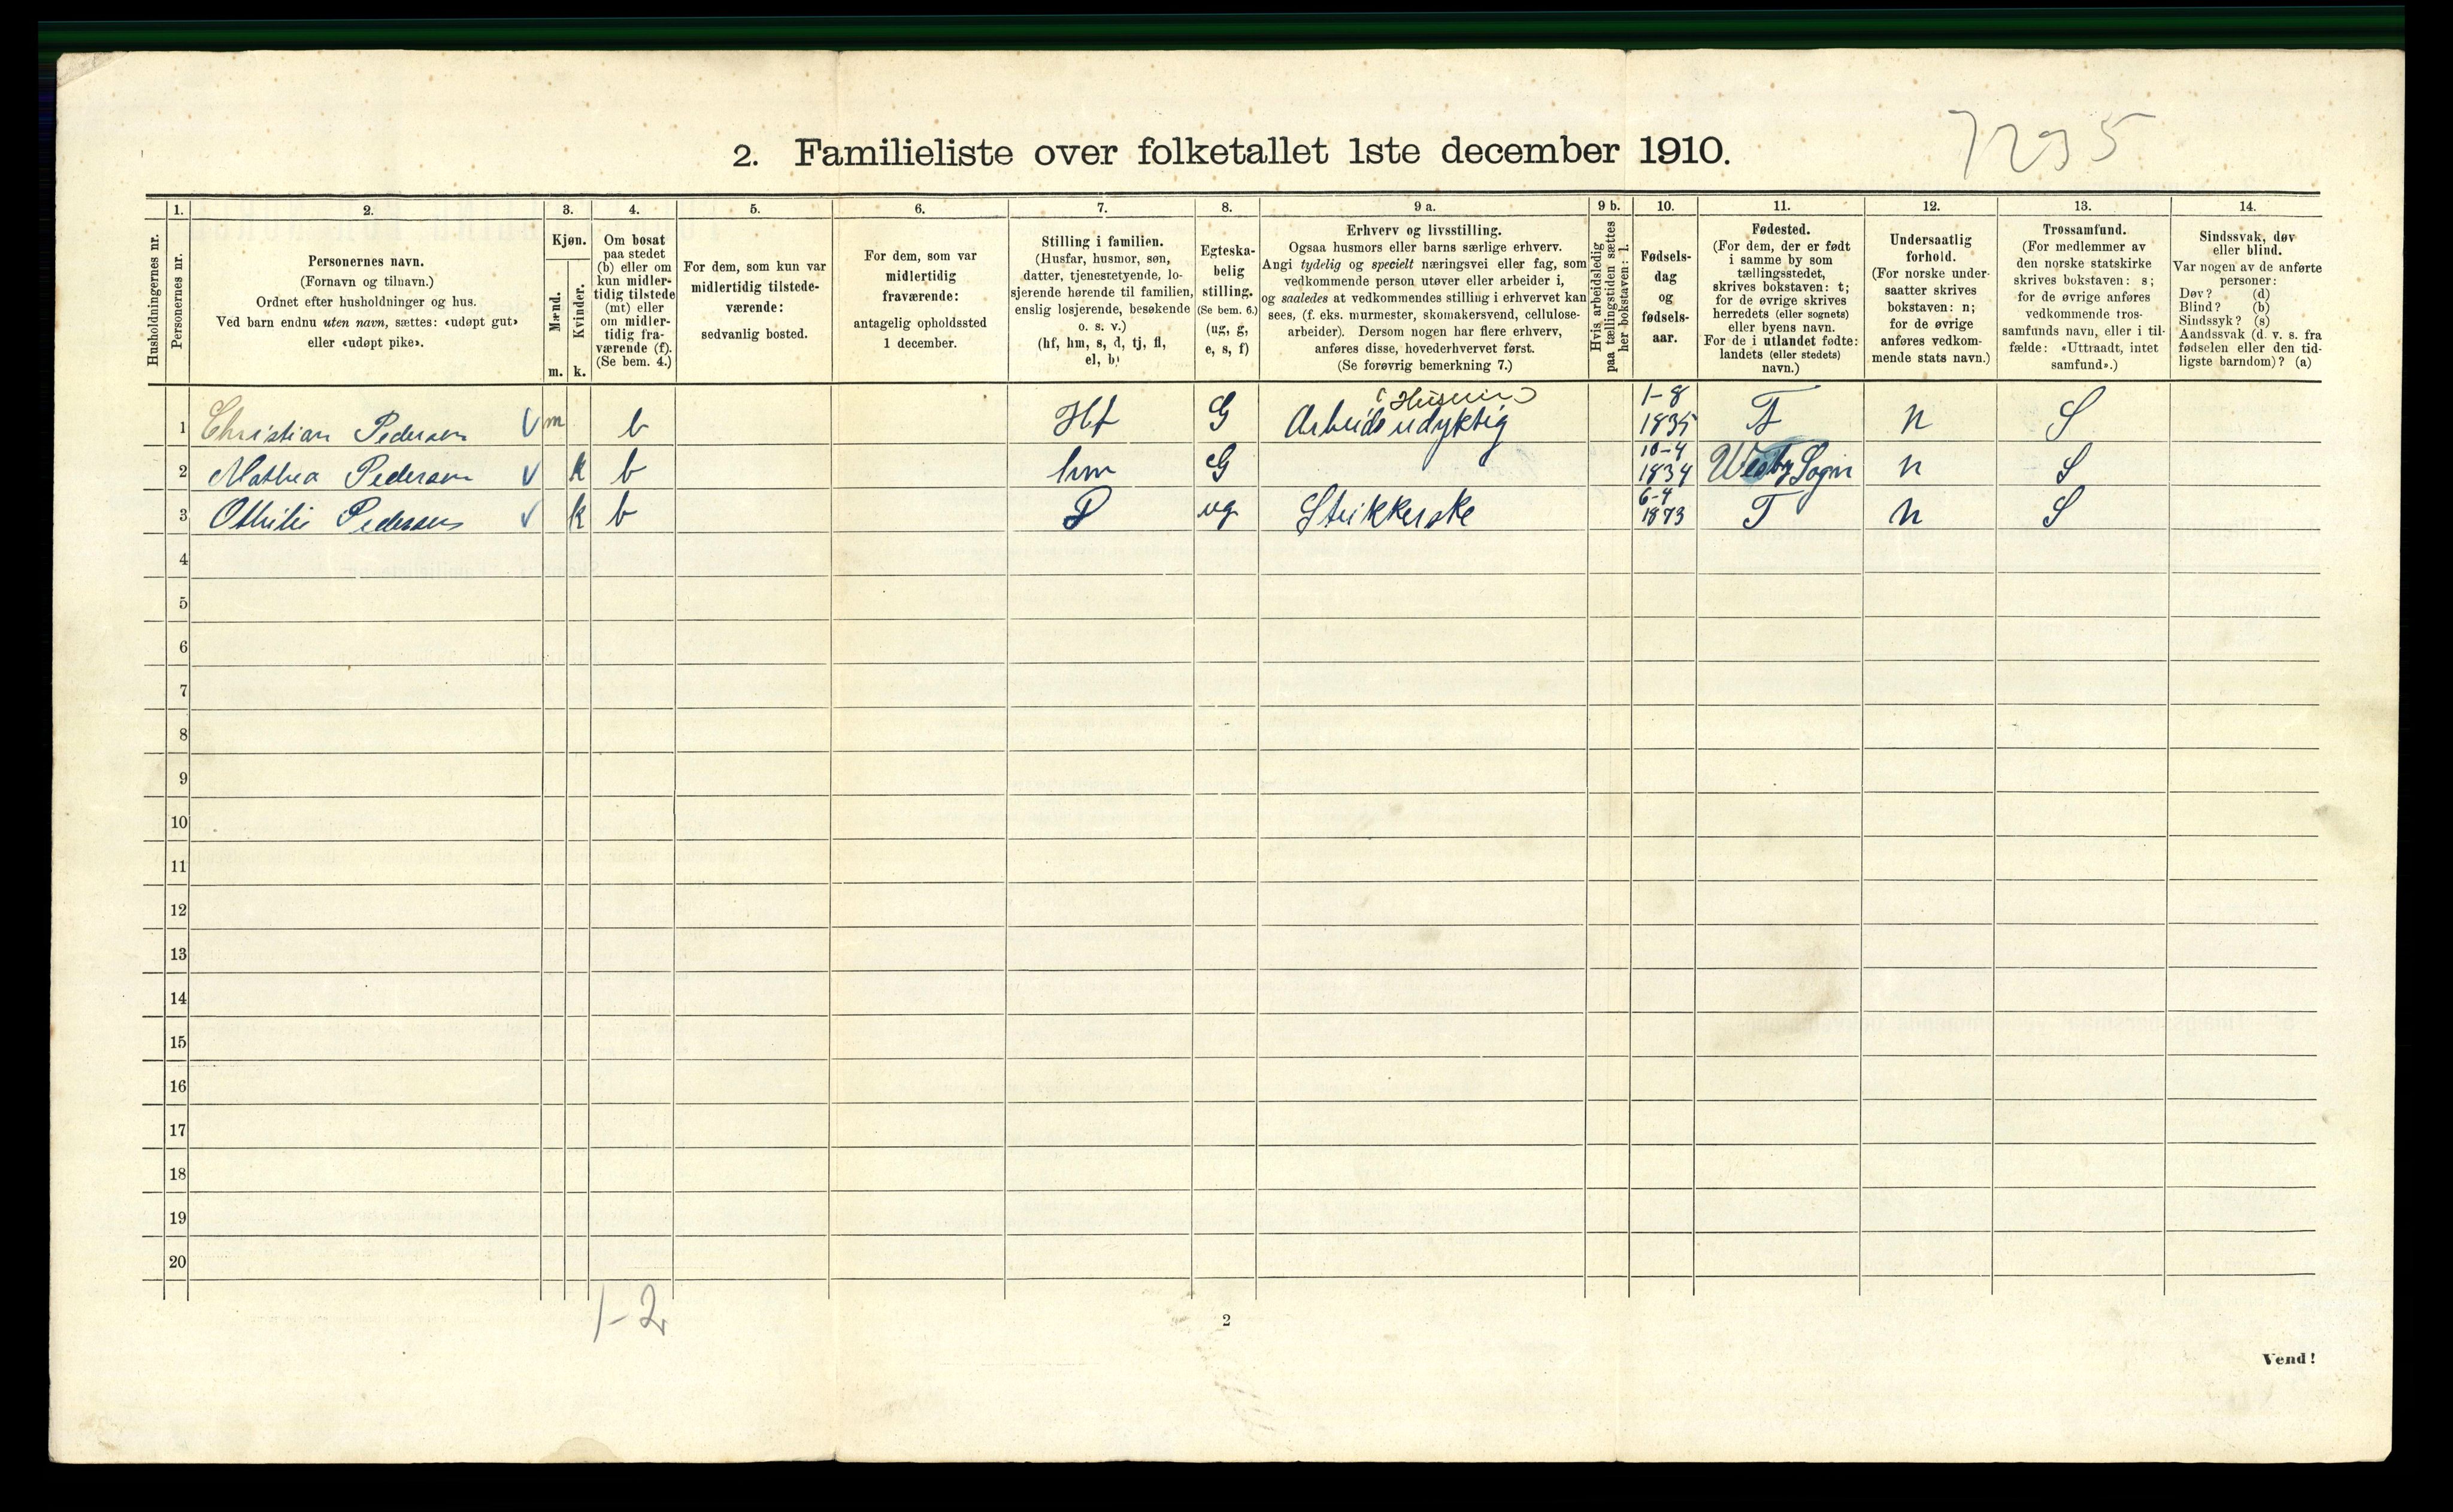 7295
2. Familieliste over folketallet 1ste december 1910.
1. 2. 3. 4. 5. 6. 7. 8. 9 a. 9 b. 10. 11. 12. 13. 14.
Husholdningernes nr.
Personernes nr.
Personernes navn.
(Fornavn og tilnavn.)
Ordnet efter husholdninger og hus.
Ved barn endnu uten navn, sættes: «udøpt gut»
eller «udøpt pike».
Kjøn.
Mænd.
Kvinder.
m. k.
Om bosat
paa stedet
(b) eller om
kun midler-
tidig tilstede
(mt) eller
om midler-
tidig fra-
værende (f).
(Se bem. 4.)
For dem, som kun var
midlertidig tilstede-
værende:
sedvanlig bosted.
For dem, som var
midlertidig
fraværende:
antagelig opholdssted
1 december.
Stilling i familien.
(Husfar, husmor, søn,
datter, tjenestetyende, lo-
sjerende hørende til familien,
enslig losjerende, besøkende
o. s. v.)
(hf, hm, s, d, tj, fl,
el, b)
Egteska-
belig
stilling.
(Se bem. 6.)
(ug, g,
e, s, f)
Erhverv og livsstilling.
Ogsaa husmors eller barns særlige erhverv.
Angi tydelig og specielt næringsvei eller fag, som
vedkommende person utøver eller arbeider i,
og saaledes at vedkommendes stilling i erhvervet kan
sees, (f. eks. murmester, skomakersvend, cellulose-
arbeider). Dersom nogen har flere erhverv,
anføres disse, hovederhvervet først.
(Se forøvrig bemerkning 7.)
Hvis arbeidsledig
paa tællingstiden sættes
her bokstaven: l.
Fødsels-
dag
og
fødsels-
aar.
Fødested.
(For dem, der er født
i samme by som
tællingsstedet,
skrives bokstaven: t;
for de øvrige skrives
herredets (eller sognets)
eller byens navn.
For de i utlandet fødte:
landets (eller stedets)
navn.)
Undersaatlig
forhold.
(For norske under-
saatter skrives
bokstaven: n;
for de øvrige
anføres vedkom-
mende stats navn.)
Trossamfund.
(For medlemmer av
den norske statskirke
skrives bokstaven: s;
for de øvrige anføres
vedkommende tros-
samfunds navn, eller i til-
fælde: «Uttraadt, intet
samfund».)
Sindssvak, døv
eller blind.
Var nogen av de anførte
personer:
Døv? (d)
Blind? (b)
Sindssyk? (s)
Aandssvak (d. v. s. fra
fødselen eller den tid-
ligste barndom)? (a)
1 Christian Pedersen V m b Hf G Arbeidsudyktig 1-8 1835 T n S
2 Mathea Pedersen V k b hm G 10-4 1834 Westby Sogn n S
3 Othilie Pedersen V k b D ug Strikkerske 6-4 1873 T n S
4
5
6
7
8
9
10
11
12
13
14
15
16
17
18
19
20
1-2
2
Vend!